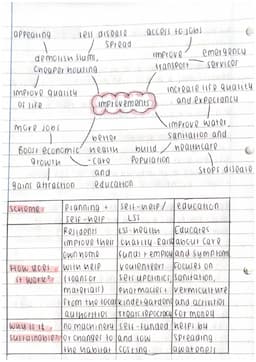 appealing
less disease spread
access to jobs
demolish slums, cheaper housing
improve transport
emergency services
improve quality of life
improvements
increase life quality and expectancy
more jobs
better health -care and education
build Population
improve water, sanitation and healthcare
Boost economic growth
Stops disease
gains attraction
scheme
Planning + self-help
self-help/ LSI
education
How does it work?
Residents improve their own home with help (loans or materials) from the local authorities
LSI-health charity funds + employ volunteers
set up clinics
pharmacies
kindergardens
Educates about care and symptoms
Focuses on sanitation,
vermiculture and activities for money
Why is it sustainable?
no machinery or changes to the habitat
self-funded and low costing
helps by spreading awareness